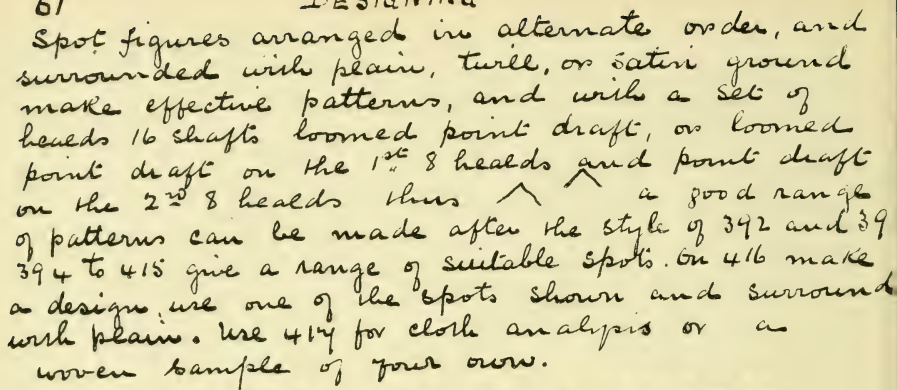 61 DESIGNING
Spot figures arranged in alternate order, and
surrounded with plain, twill, or satin ground
make effective patterns, and with a set of
healds 16 shafts loomed point draft, or loomed
point draft on the 1st 8 healds and point draft
on the 2nd 8 healds thus a good range
of patterns can be made after the style of 392 and 39
394 to 415 give a range of suitable spots. On 416 make
a design, use one of the spots shown and surround
with plain. Use 417 for cloth analysis or a
woven sample of your own.